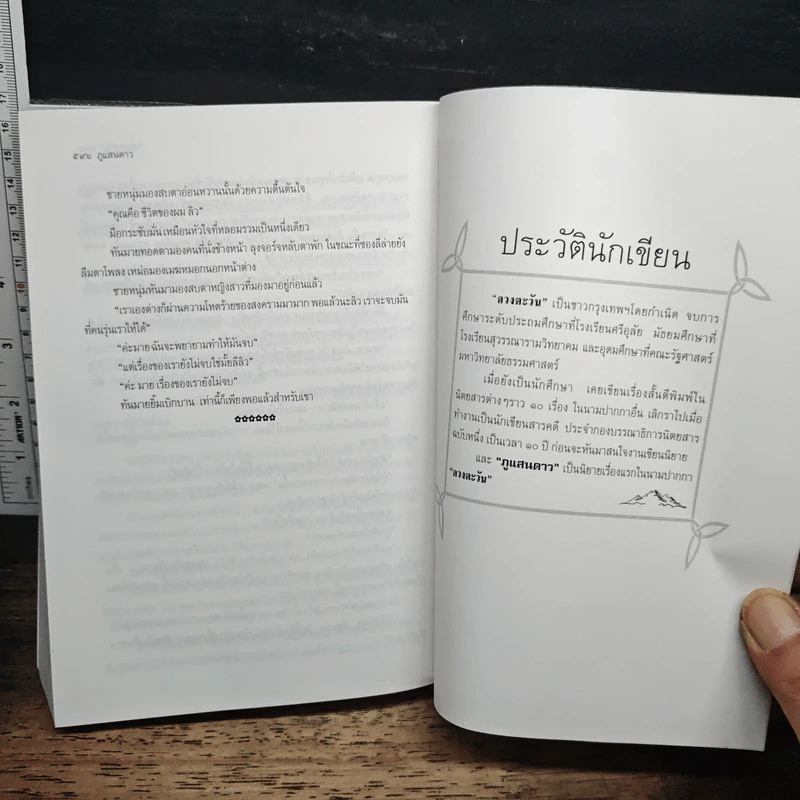 ๕๙๖ ภูแสนดาว
ชายหนุ่มมองสบตาอ่อนหวานนั้นด้วยความตื้นตันใจ
“คุณคือ ชีวิตของผม ลิว”
มือกระชับมั่น เหมือนหัวใจที่หลอมรวมเป็นหนึ่งเดียว
ทันมายทอดตามองคนที่นั่งข้างหน้า ลุงจอร์จหลับตาพัก ในขณะที่ซองลีล่ายยัง
ลืมตาโพลง เหม่อมองเมฆหมอกนอกหน้าต่าง
ชายหนุ่มหันมามองสบตาหญิงสาวที่มองมาอยู่ก่อนแล้ว
“เราเองต่างก็ผ่านความโหดร้ายของสงครามมามาก พอแล้วนะลิว เราจะจบมัน
ที่คนรุ่นเราให้ได้”
“ค่ะมาย ฉันจะพยายามทำให้มันจบ”
“แต่เรื่องของเรายังไม่จบใช่มั้ยลีลิว”
“ค่ะ มาย เรื่องของเรายังไม่จบ”
ทันมายยิ้มเบิกบาน เท่านี้ก็เพียงพอแล้วสำหรับเขา
✿✿✿✿✿✿
ประวัตินักเขียน
“ดวงตะวัน” เป็นชาวกรุงเทพฯโดยกำเนิด จบการ
ศึกษาระดับประถมศึกษาที่โรงเรียนศรีอุลัย มัธยมศึกษาที่
โรงเรียนสุวรรณารามวิทยาคม และอุดมศึกษาที่คณะรัฐศาสตร์
มหาวิทยาลัยธรรมศาสตร์
เมื่อยังเป็นนักศึกษา เคยเขียนเรื่องสั้นตีพิมพ์ใน
นิตยสารต่างๆราว ๑๐ เรื่อง ในนามปากกาอื่น เลิกราไปเมื่อ
ทำงานเป็นนักเขียนสารคดี ประจำกองบรรณาธิการนิตยสาร
ฉบับหนึ่ง เป็นเวลา ๑๐ ปี ก่อนจะหันมาสนใจงานเขียนนิยาย
และ “ภูแสนดาว” เป็นนิยายเรื่องแรกในนามปากกา
“ดวงตะวัน”